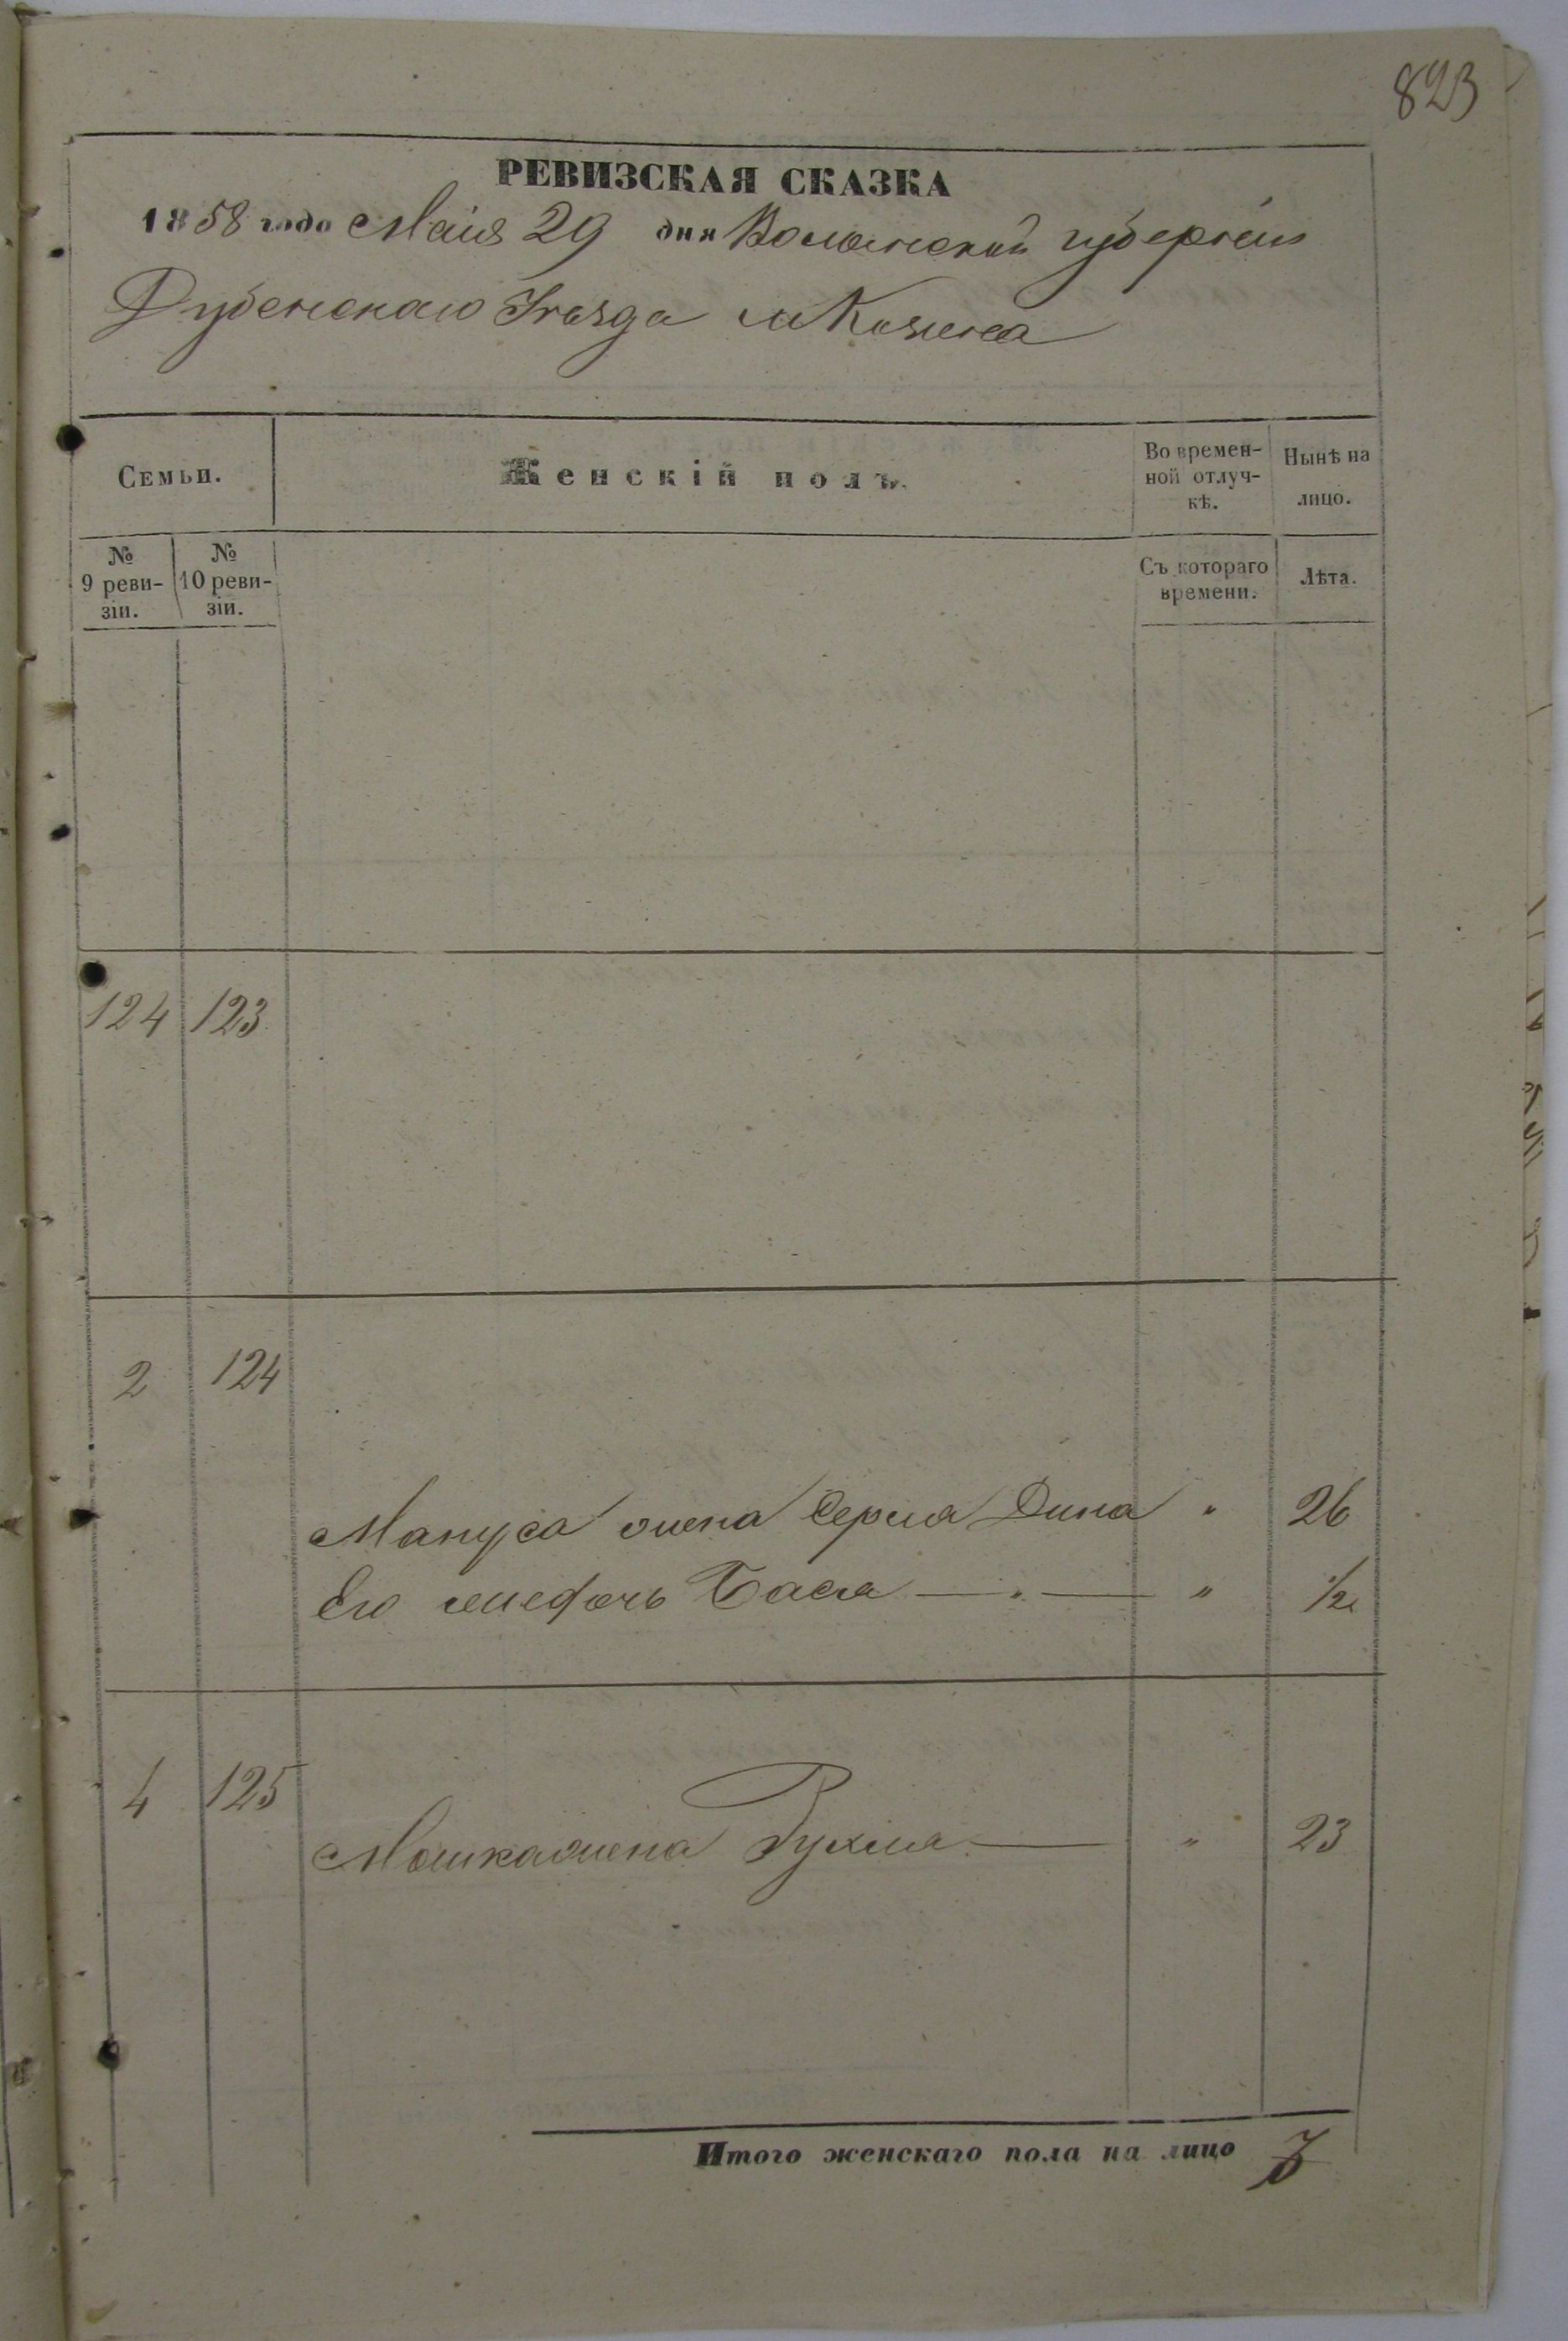 823
РЕВИЗСКАЯ СКАЗКА
1858 года Маія 29 дня Волынской губерніи
Дубенскаго Уѣзда м Козина
Семьи.
Женскій полъ.
Во времен-
ной отлуч-
кѣ.
Нынѣ на
лицо.
№
9 реви-
зіи.
№
10 реви-
зіи.
Съ котораго
времени.
Лѣта.
124 123
2 124
Мануса жена Серля Дина " 26
Его дочь Бася — " — " 1/2
4 125
Мошка жена Рухля — " 23
Итого женскаго пола на лицо 3